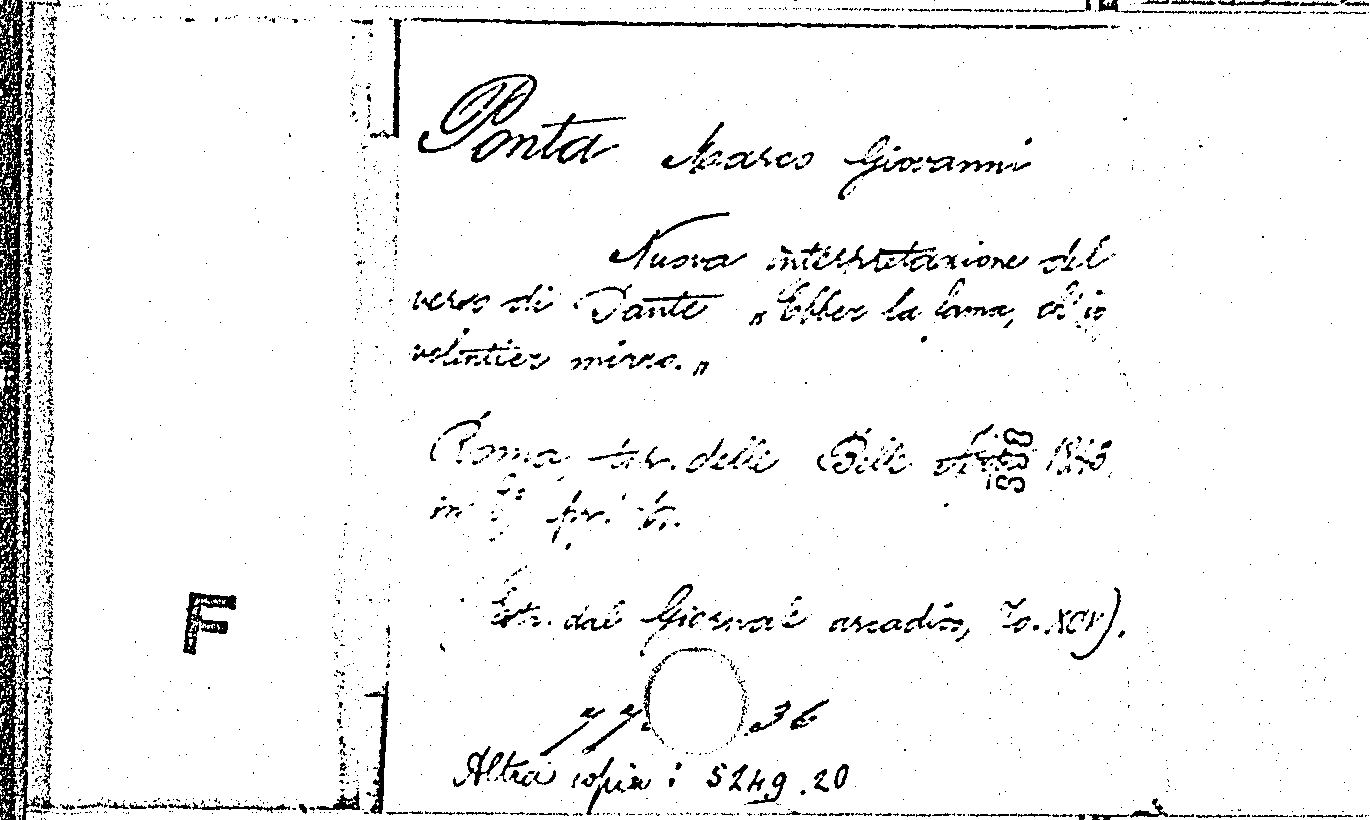 Ponta Marco Giovanni
Nuova interpretazione del
verso di Dante „Ebber la fama, ch'io
volentier mirro.„
Roma, tip. delle Belle Arti 1843
in
Estr. dal Giornale arcadico, To. XCV).
36
Altra copia : 5249.20
F